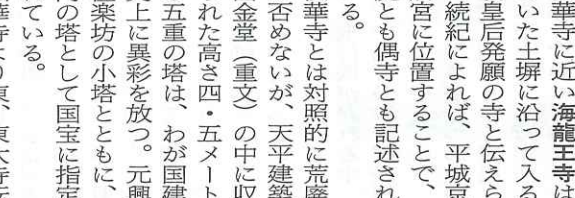 華寺に近い海龍王寺は
いた土塀に沿って入る
皇后発願の寺と伝えら
続紀によれば、平城京
宮に位置することで、
とも偶寺とも記述され
る。
華寺とは対照的に荒廃
否めないが、天平建築
金堂（重文）の中に収
れた高さ四・五メート
五重の塔は、わが国建
上に異彩を放つ。元興
楽坊の小塔とともに、
の塔として国宝に指定
ている。
華寺より東、東大寺